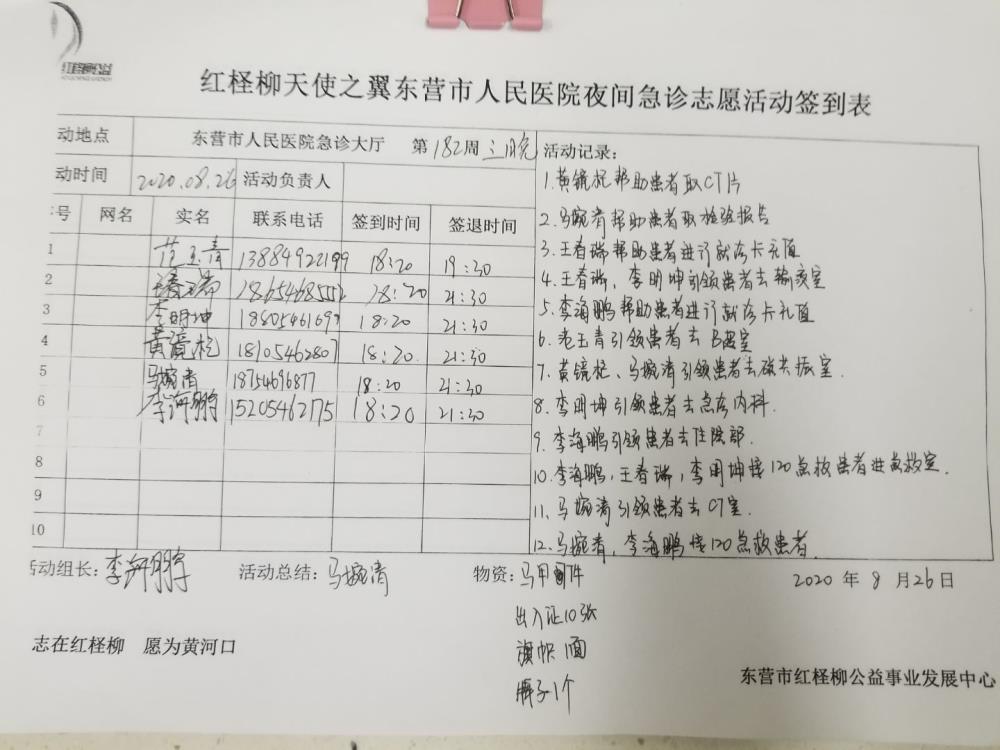 红柽柳公益
红柽柳天使之翼东营市人民医院夜间急诊志愿活动签到表
动地点 东营市人民医院急诊大厅 第182周三晚
动时间 2020.08.26 活动负责人
号 网名 实名 联系电话 签到时间 签退时间
1 范玉青 13884922199 18:20 19:30
2 18654685552 18:20 21:30
3 李明坤 18:20 21:30
4 黄镜杞 18105462807 18:20 21:30
5 马婉清 18754696877 18:20 21:30
6 李海鹏 15205462175 18:20 21:30
7
8
9
10
活动记录:
1.黄镜杞帮助患者取CT片
2.马婉清帮助患者取检验报告
3.王春瑞帮助患者进订就诊卡充值
4.王春瑞、李明坤引领患者去输液室
5.李海鹏帮助患者进订就诊卡充值
6.范玉青引领患者去B超室
7.黄镜杞、马婉清引领患者去磁共振室.
8.李明坤引领患者去急诊内科.
9.李海鹏引领患者去住院部.
10.李海鹏,王春瑞,李明坤接120急救患者进急救室.
11.马婉清引领患者去CT室.
12.马婉清,李海鹏接120急救患者.
活动组长:李海鹏 活动总结:马婉清 物资:马甲 件
2020 年 8 月 26 日
出入证10张
旗帜1面
志在红柽柳 愿为黄河口
1个
东营市红柽柳公益事业发展中心